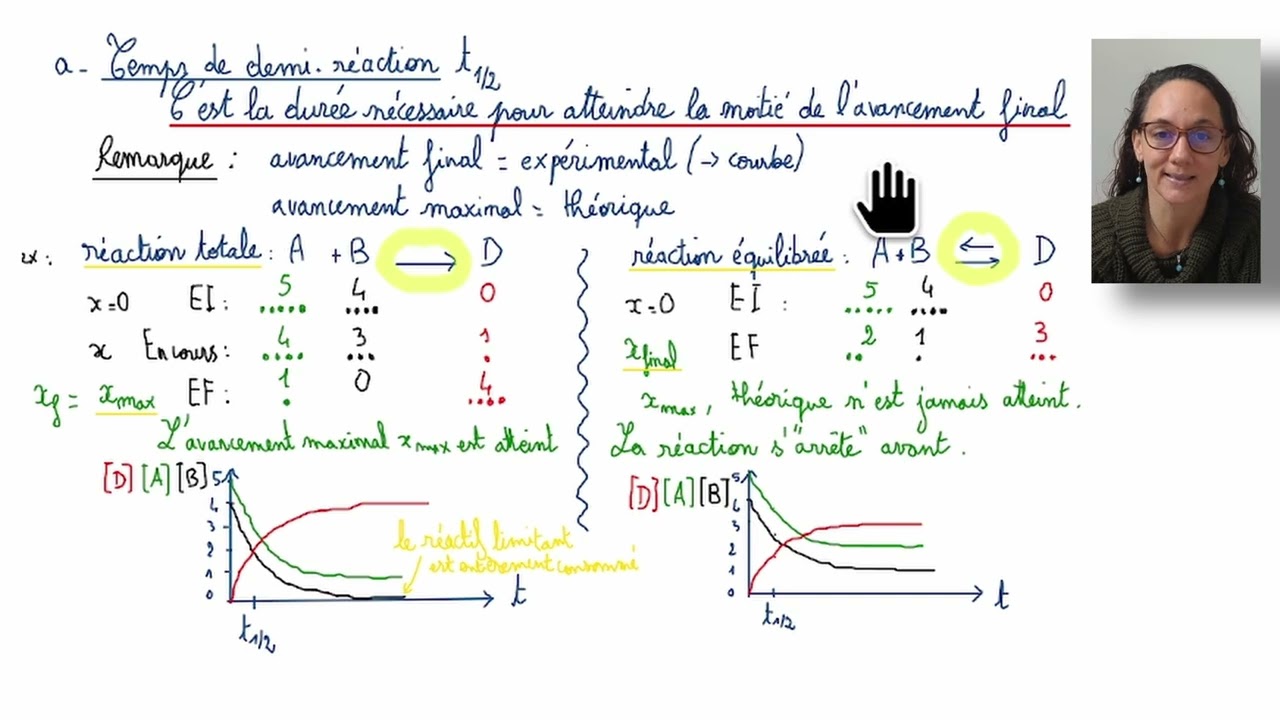 a - Temps de demi-réaction t1/2
C'est la durée nécessaire pour atteindre la moitié de l'avancement final
Remarque : avancement final = expérimental (→ courbe)
avancement maximal = théorique
ex : réaction totale : A + B → D
x=0 EI : 5 4 0
x En cours : 4 3 1
xf = xmax EF : 1 0 4
L'avancement maximal xmax est atteint
[D] [A] [B]
5
4
3
2
1
0
t1/2
t
le réactif limitant
est entièrement consommé
réaction équilibrée : A + B ⇄ D
x=0 EI : 5 4 0
xfinal EF 2 1 3
xmax, théorique n'est jamais atteint.
La réaction s'"arrête" avant.
[D] [A] [B]
5
4
3
2
1
0
t1/2
t